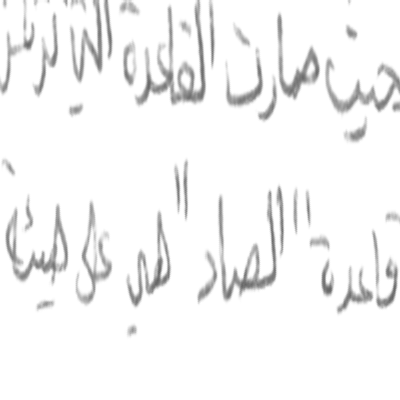 حيث صارت القاعدة التي ترتكز
قاعدة "الصاد" هي على هيئة